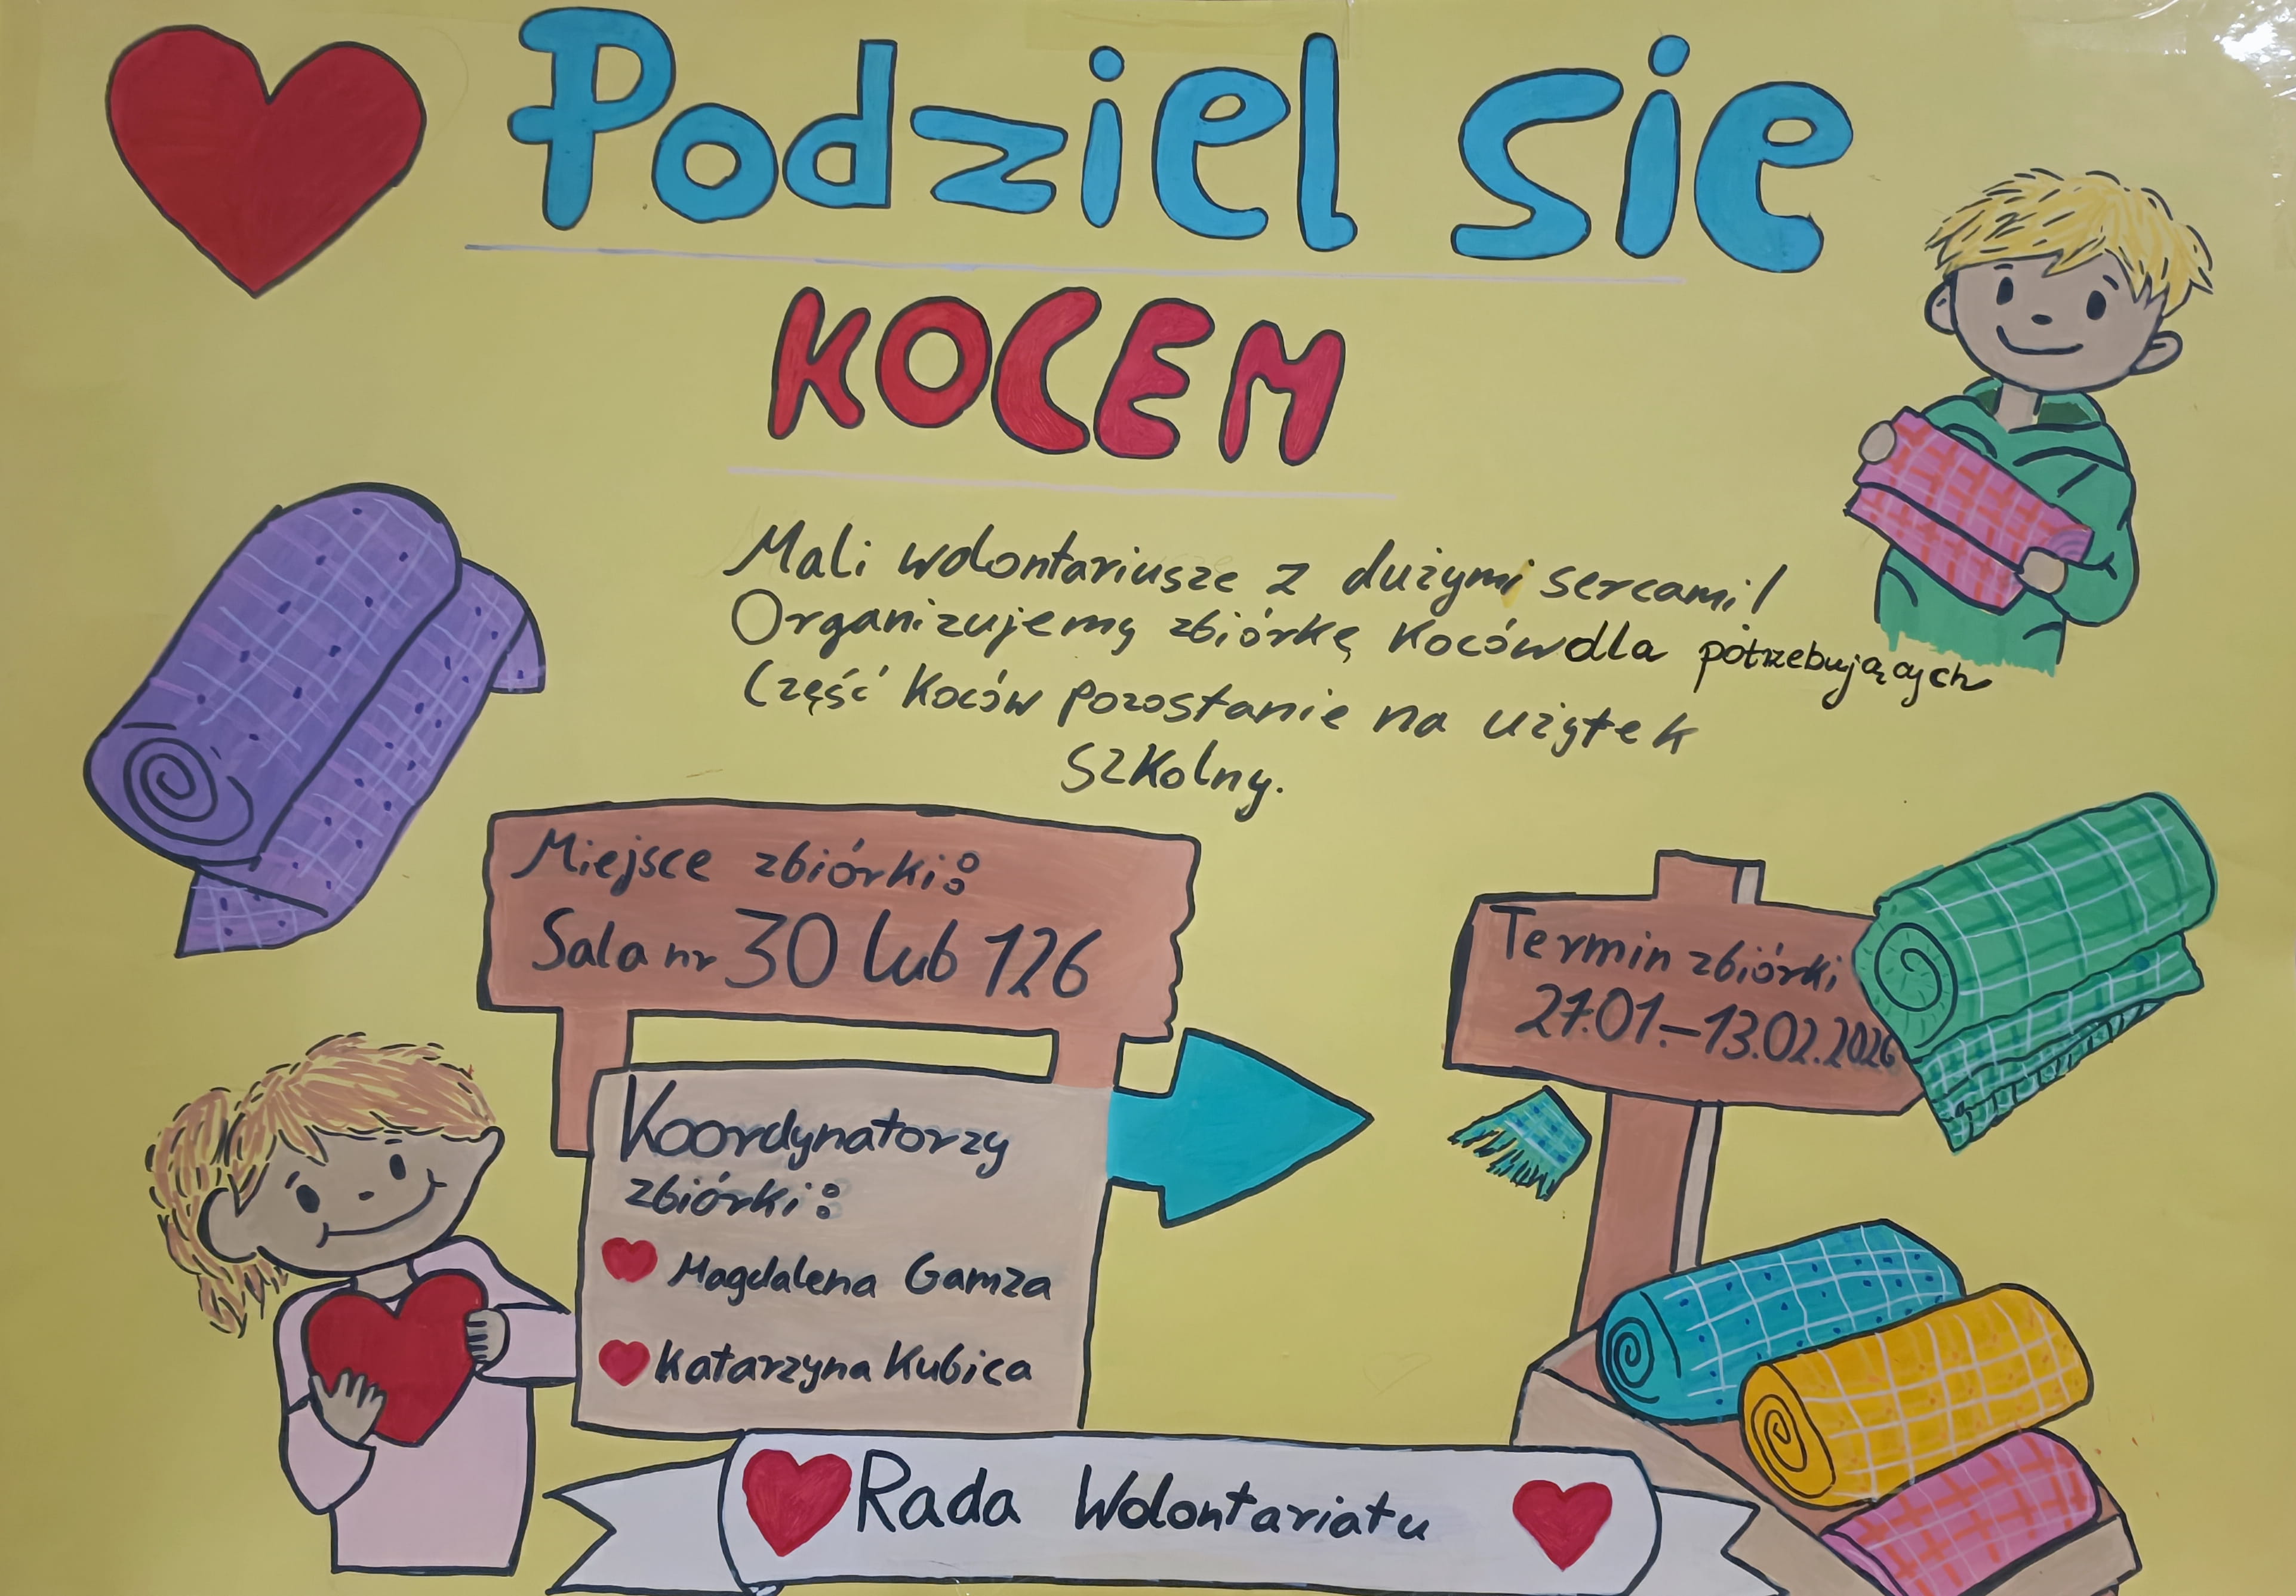 Podziel się
KOCEM
Mali wolontariusze z dużymi sercami!
Organizujemy zbiórkę koców dla potrzebujących
Część koców pozostanie na użytek
szkolny.
Miejsce zbiórki:
Sala nr 30 lub 126
Termin zbiórki
27.01.-13.02.2026
Koordynatorzy
zbiórki:
Magdalena Gamza
Katarzyna Kubica
Rada Wolontariatu